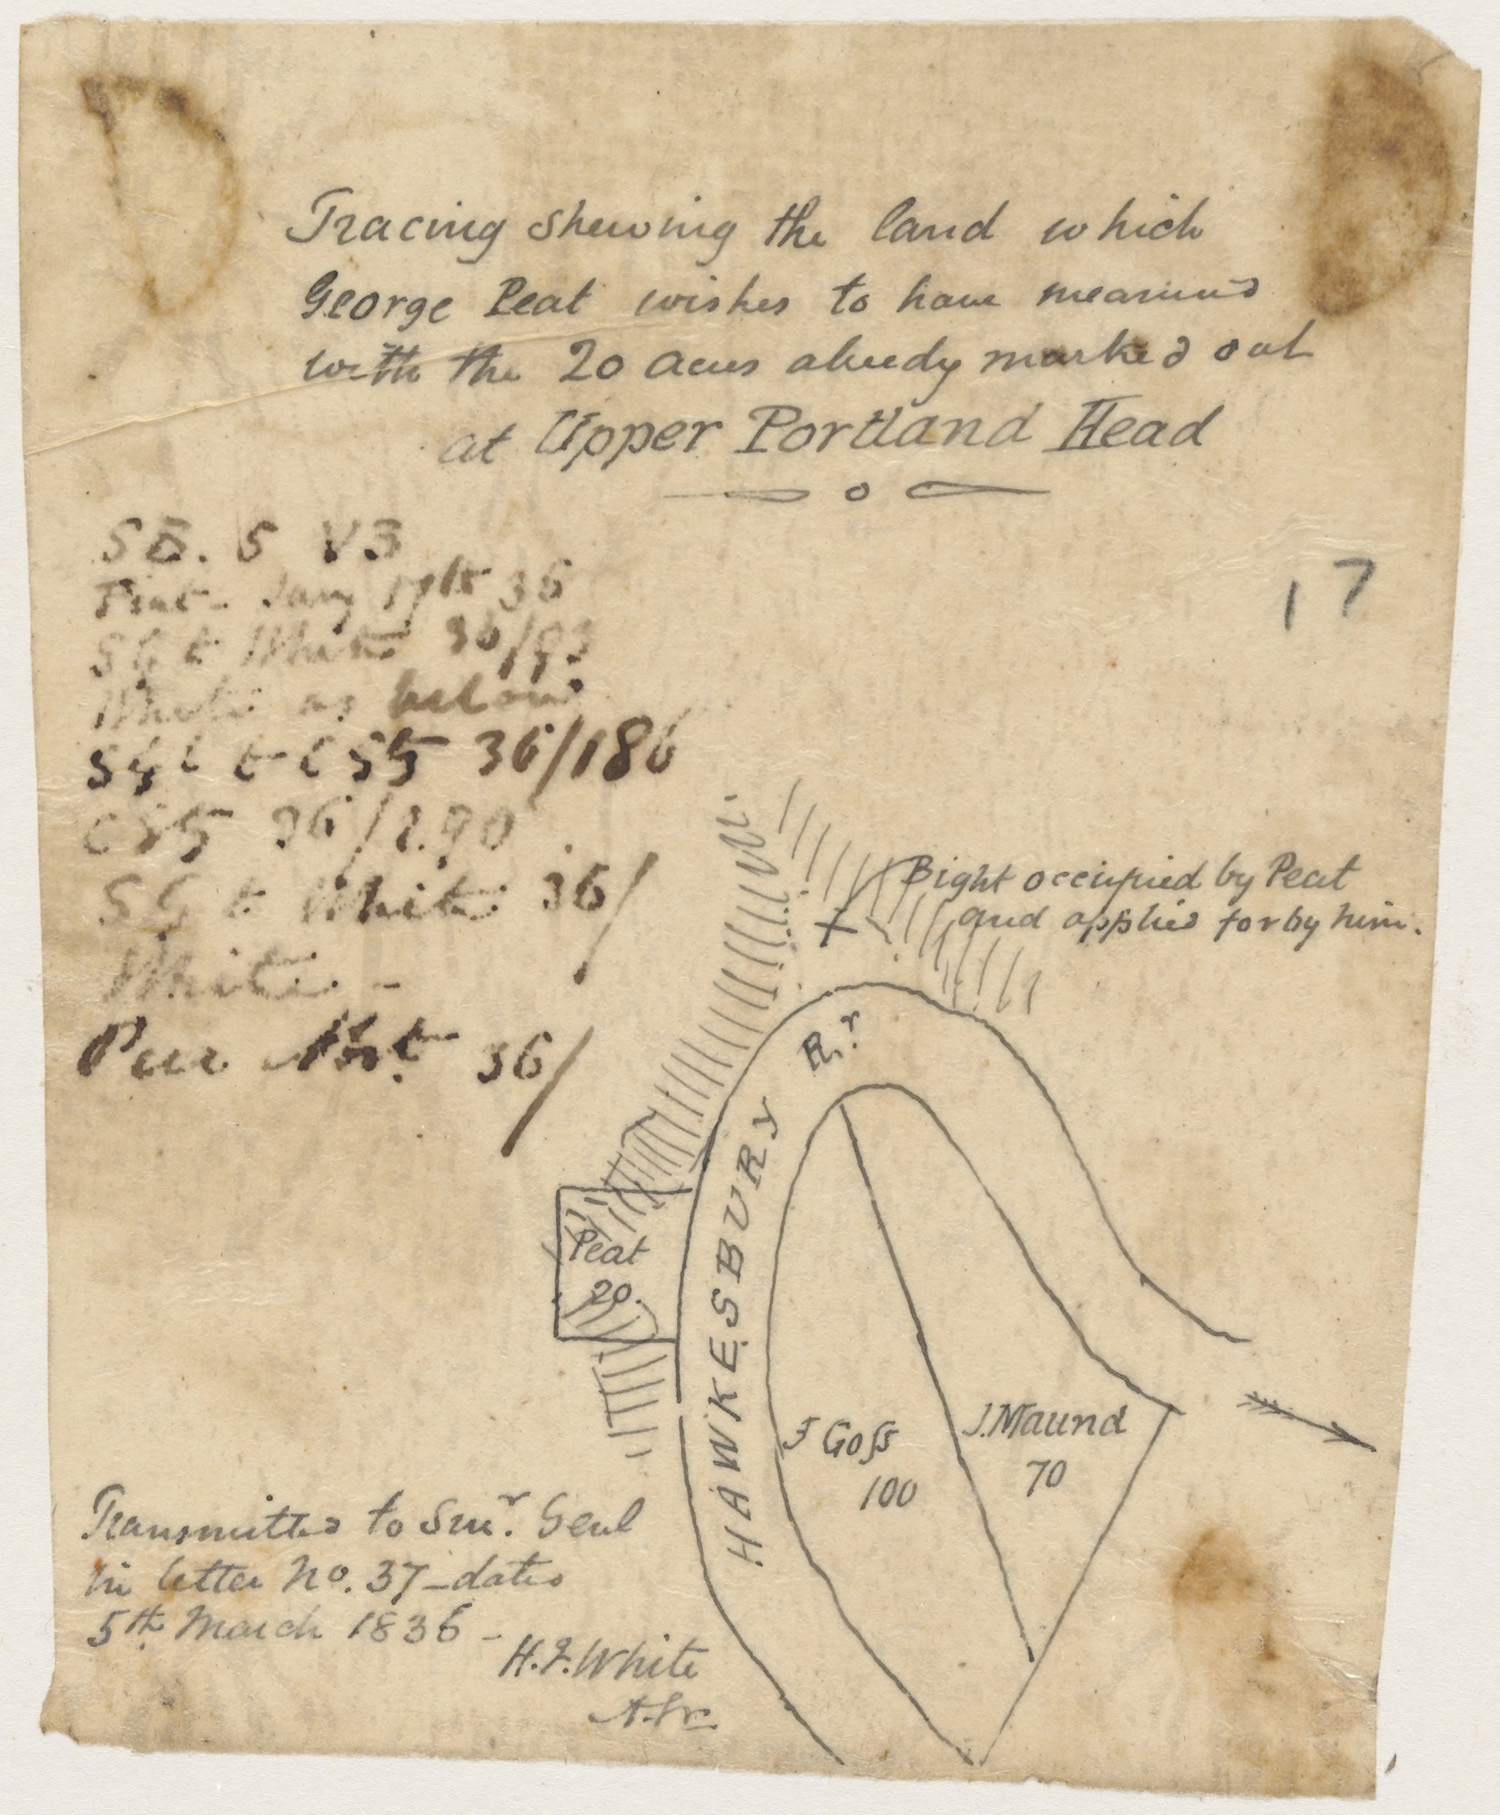 Tracing shewing the land which
George Peat wishes to have measured
with the 20 acres already marked out
at Upper Portland Head
SB. 5 V3
Peat - Jany 17th 36
SG to White 36/93
White as below
36/186
36/290
SG to White 36/
White -
36/
17
Bight occupied by Peat
and applied for by him.
HAWKESBURY Rr
Peat
20.
J Goss
100
J. Maund
70
Transmitted to Sur. Genl
in letter No. 37 - dated
5th March 1836 -
H.F. White